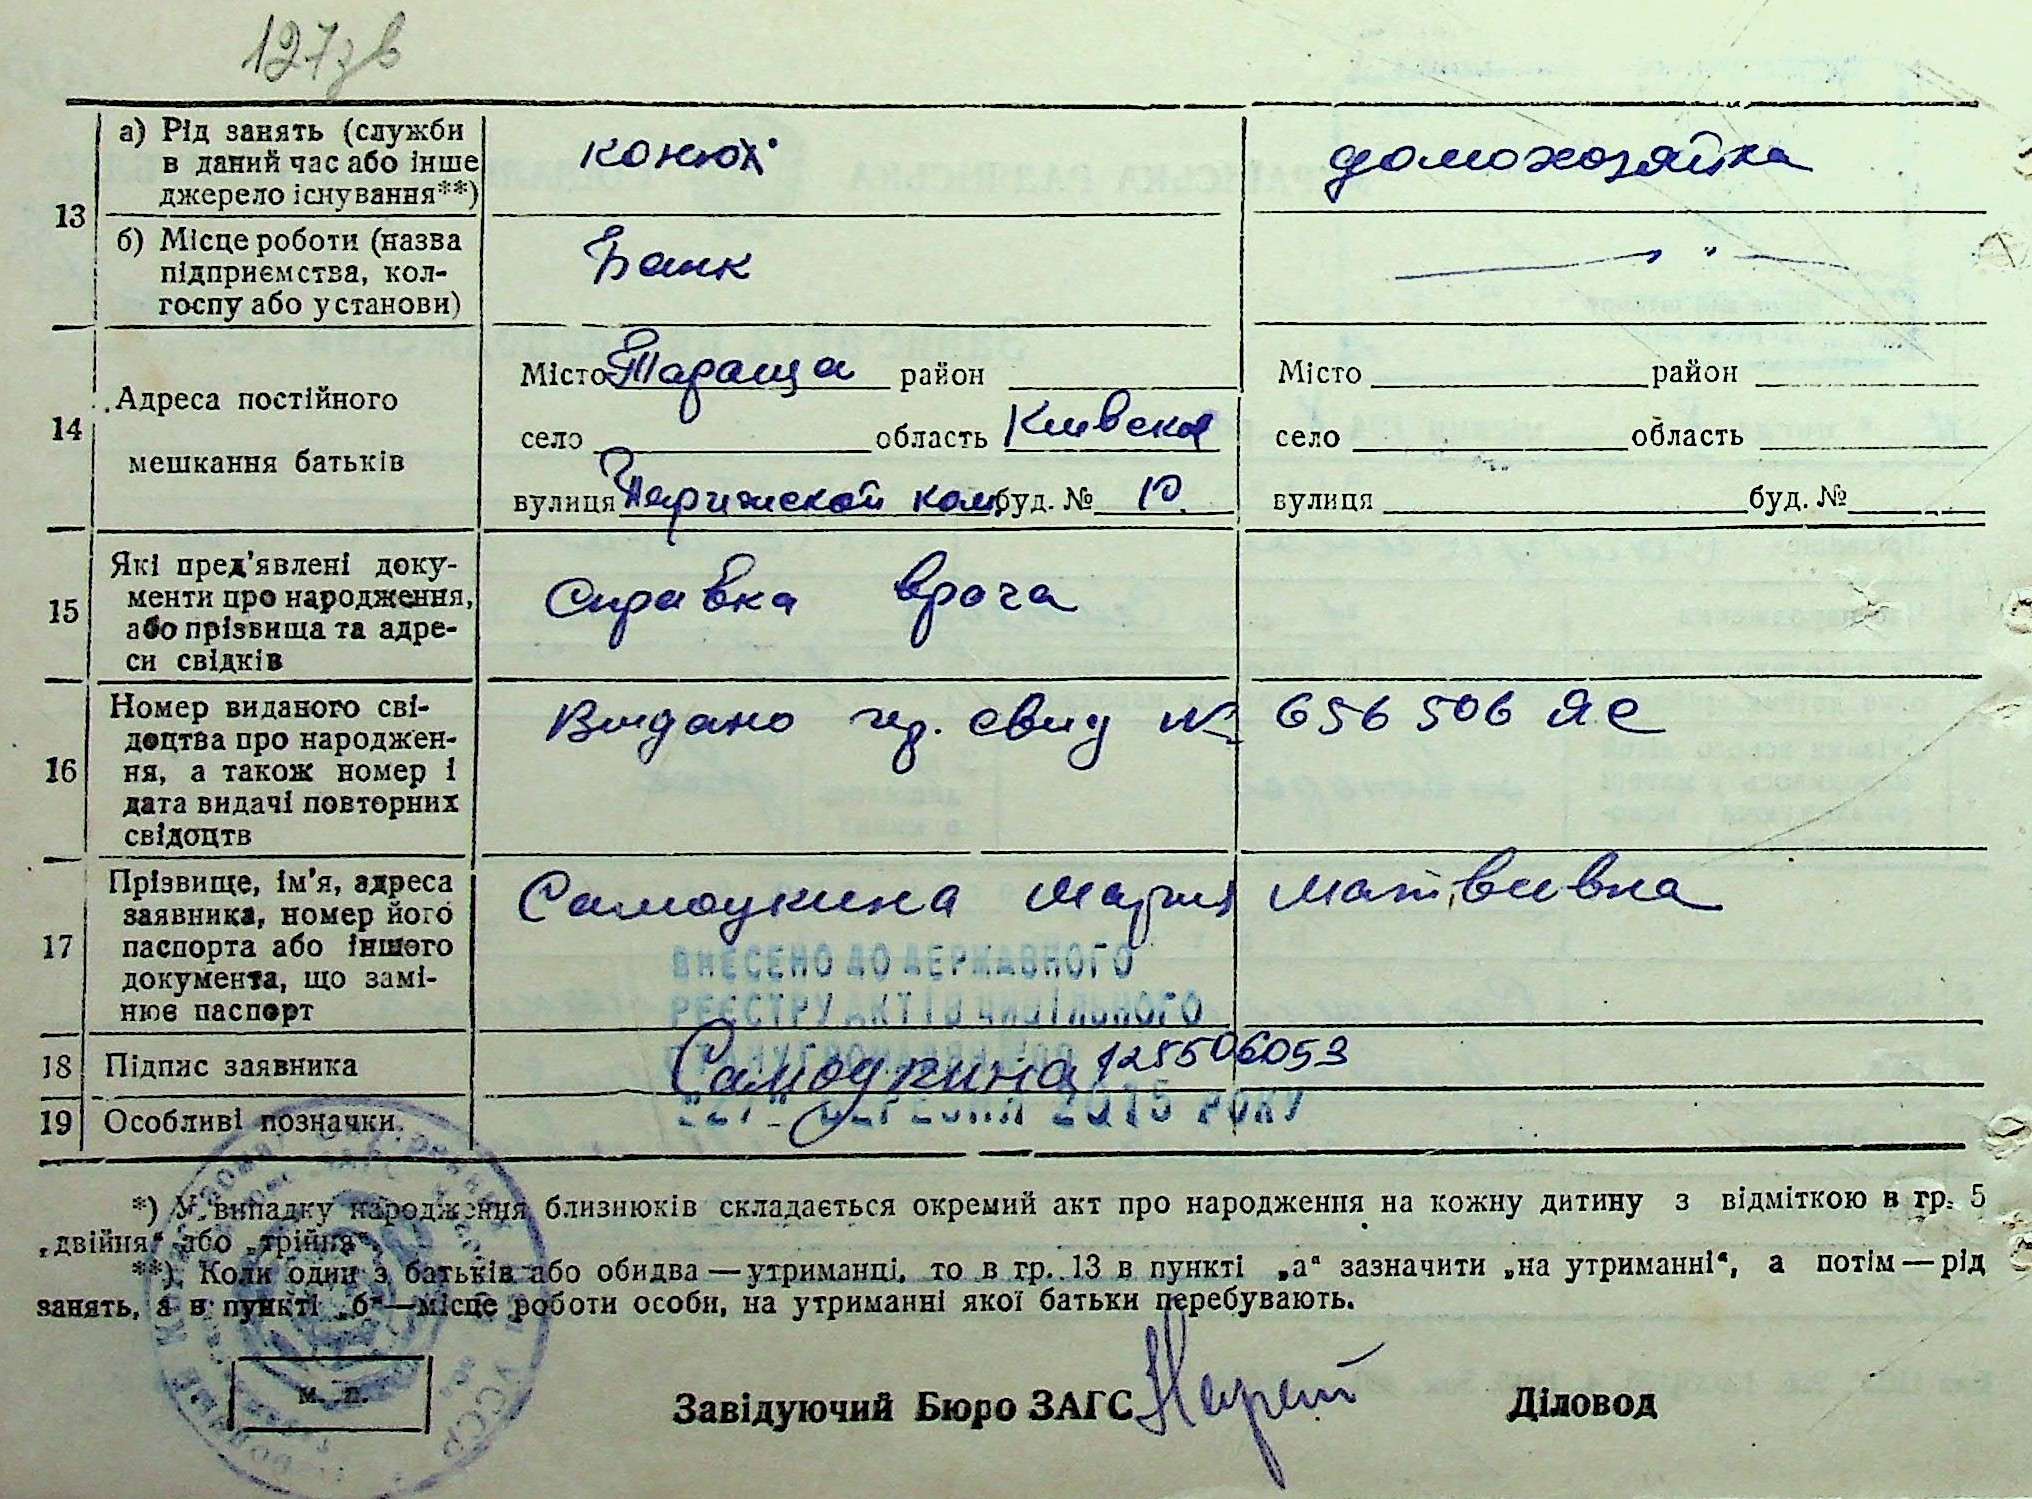 127зв
13
а) Рід занять (служби
в даний час або інше
джерело існування**)
конюх
домохозяйка
б) Місце роботи (назва
підприємства, кол-
госпу або установи)
Банк
— " —
14
Адреса постійного
мешкання батьків
Місто Тараща район
село область Киевская
вулиця Парижской ком. буд. № 10.
Місто район
село область
вулиця буд. №
15
Які пред'явлені доку-
менти про народження,
або прізвища та адре-
си свідків
Справка врача
16
Номер виданого сві-
доцтва про народжен-
ня, а також номер і
дата видачі повторних
свідоцтв
Видано свид № 656506 ЯС
17
Прізвище, ім'я, адреса
заявника, номер його
паспорта або іншого
документа, що замі-
нює паспорт
Самоукина Мария Матвивна
ВНЕСЕНО ДО ДЕРЖАВНОГО
РЕЄСТРУ АКТІВ ЦИВІЛЬНОГО
СТАНУ ГРОМАДЯН
18
Підпис заявника
Самоукина
2015 РОКУ
19
Особливі позначки.
*) У випадку народження близнюків складається окремий акт про народження на кожну дитину з відміткою в гр. 5
„двійня" або „трійня".
**) Коли один з батьків або обидва — утриманці, то в гр. 13 в пункті „а" зазначити „на утриманні", а потім — рід
занять, а в пункті „б" — місце роботи особи, на утриманні якої батьки перебувають.
м. п.
Завідуючий Бюро ЗАГС
Діловод
УССР